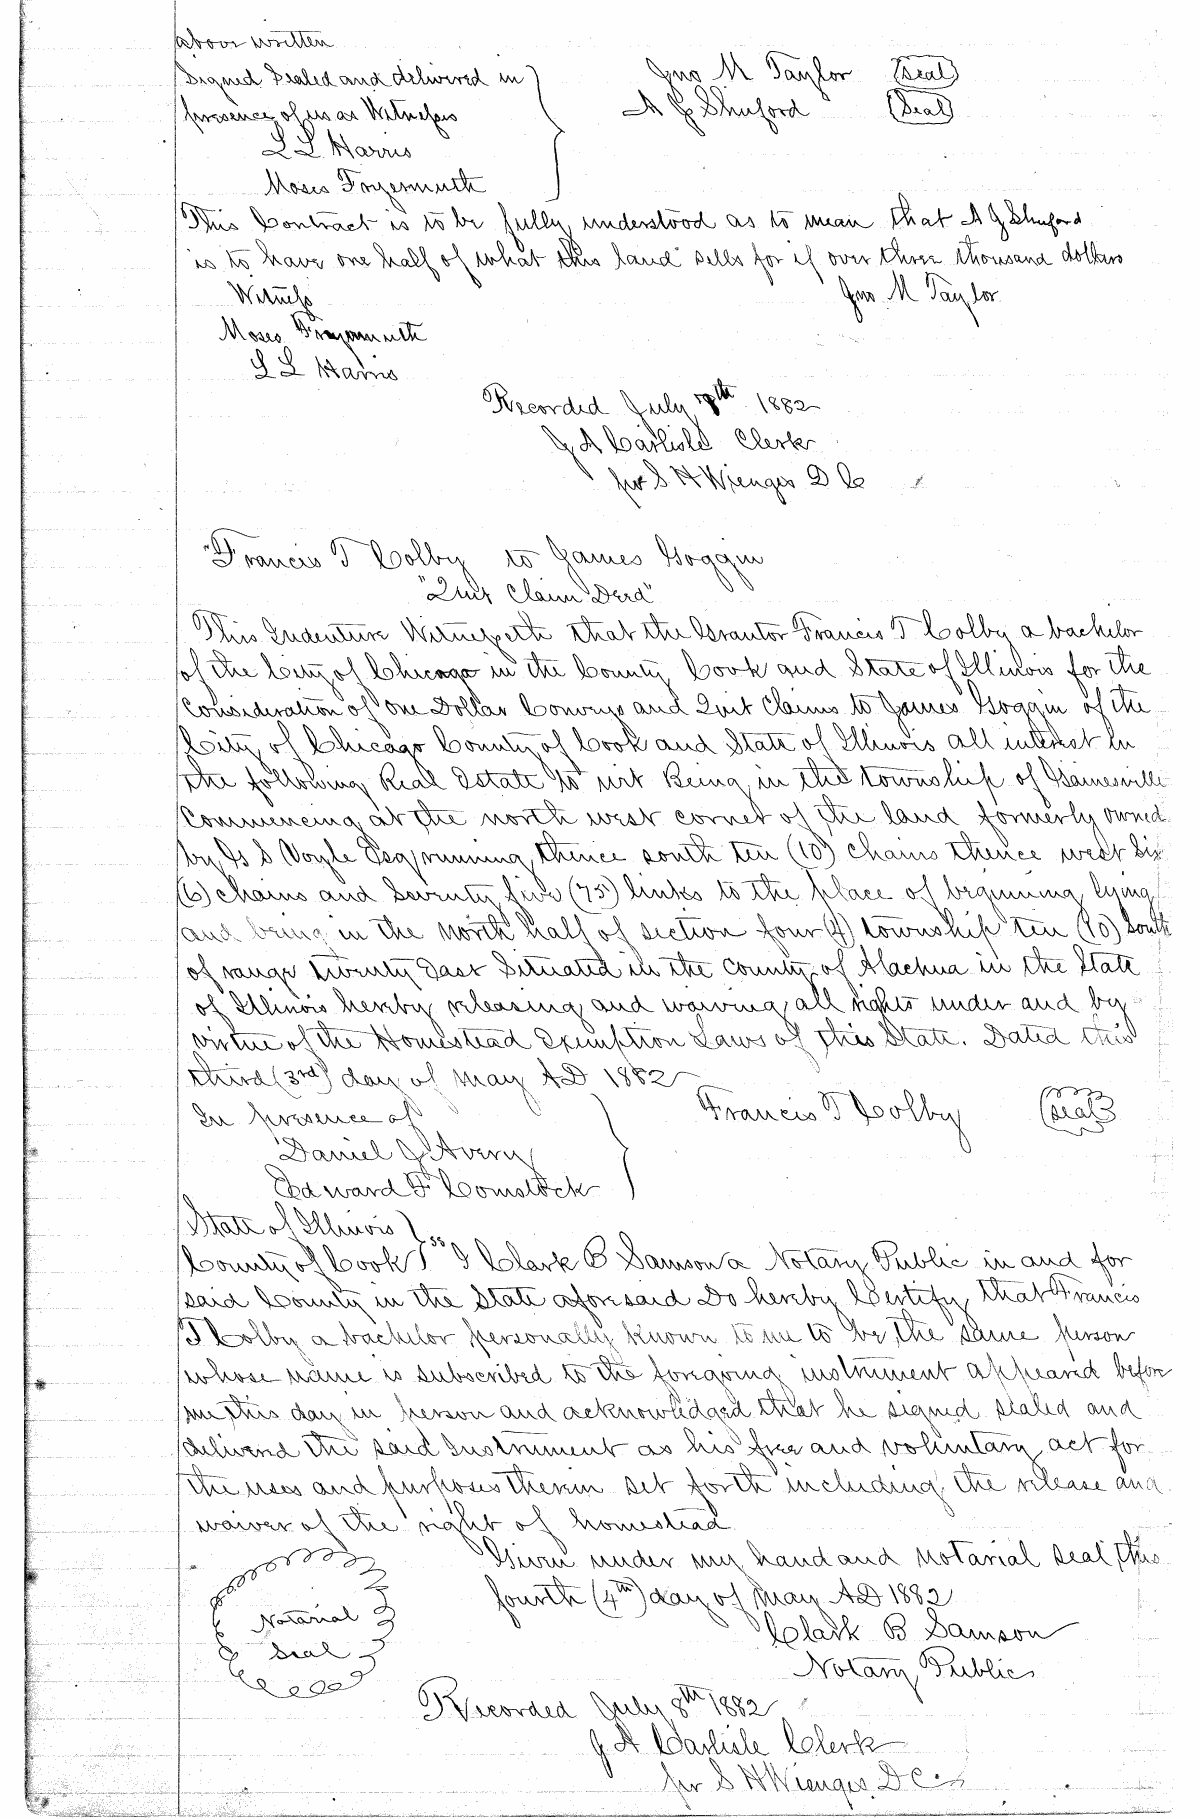 above written
Signed Sealed and delivered in
presence of us as Witnesses
L L Harris
Moses
Jno M Taylor (Seal)
A J Shuford (Seal)
This Contract is to be fully understood as to mean that A J Shuford
is to have one half of what this land sells for if over three thousand dollars
Witness
Jno. M Taylor
Moses
L L Harris
Recorded July 1882
J A Carlisle Clerk
per S H Wienges D C
"Francis T Colby to James Goggin
"Quit Claim Deed"
This Indenture Witnesseth that the Grantor Francis T Colby a bachelor
of the City of Chicago in the County Cook and State of Illinois for the
Consideration of One Dollar Conveys and Quit Claims to James Goggin of the
City of Chicago County of Cook and State of Illinois all interest in
the following Real Estate to wit Being in the township of Gainesville
Commencing at the north west corner of the land formerly owned
by G S Voyle Esq running thence south ten (10) chains thence west Six
(6) chains and Seventy five (75) links to the place of beginning lying
and being in the north half of section four (4) township ten (10) South
of range twenty East Situated in the County of Alachua in the State
of Illinois hereby releasing and waiving all rights under and by
virtue of the Homestead Exemption Laws of this State. Dated this
third (3rd) day of May AD 1882
In presence of
Daniel J Avery
Edward F Comstock
Francis T Colby (Seal)
State of Illinois } ss
County of Cook I Clark B Samson a Notary Public in and for
said County in the State aforesaid Do hereby Certify that Francis
T Colby a bachelor personally known to me to be the same person
whose name is subscribed to the foregoing instrument appeared before
me this day in person and acknowledged that he signed sealed and
delivered the said Instrument as his free and voluntary act for
the uses and purposes therein set forth including the release and
waiver of the right of homestead
Given under my hand and notarial seal this
fourth (4th) day of May AD 1882
Clark B Samson
Notary Public
Notarial
Seal
Recorded July 8th 1882
J A Carlisle Clerk
per S H Wienges D C